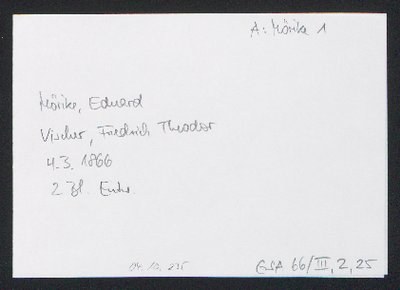 A: Mörike 1
Mörike, Eduard
Vischer, Friedrich Theodor
4.3. 1866
2 Bl. Entw.
GSA 66/III, 2, 25